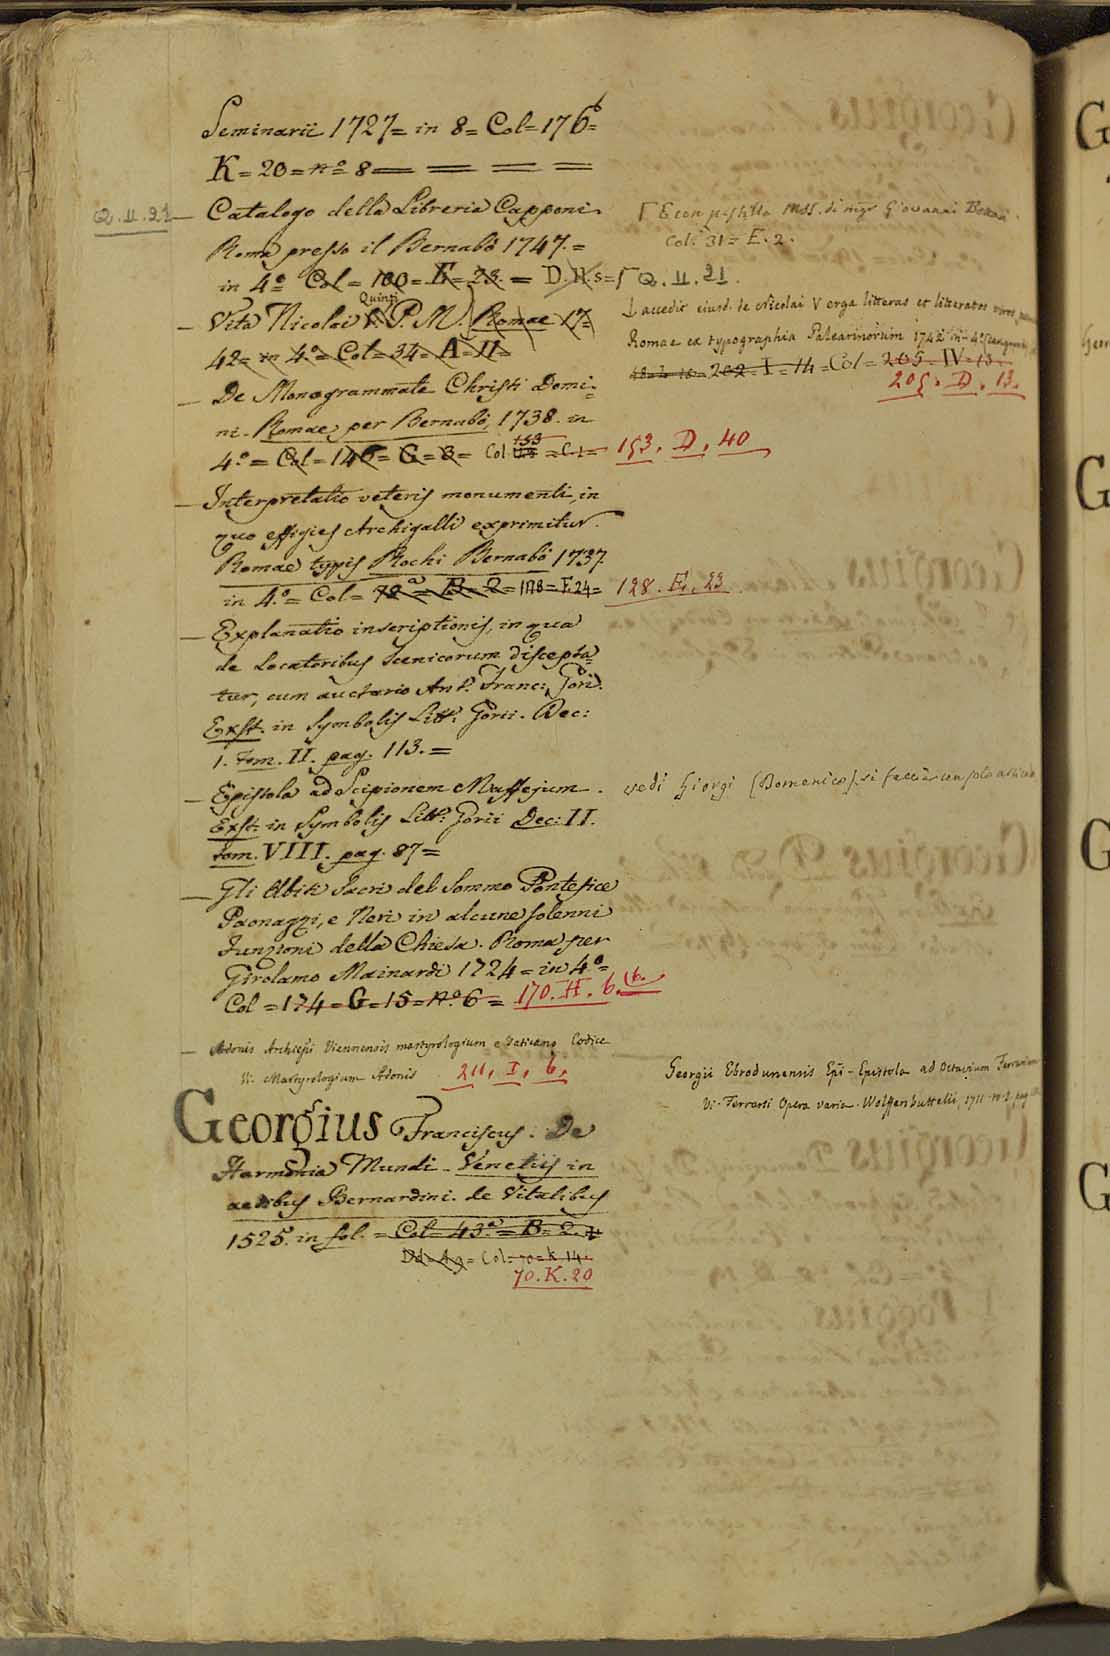 Seminarii 1727= in 8= Col= 176b=
K= 20= no 8 = = = =
Q. II. 21 — Catalogo della Libreria Capponi.
Roma presso il Bernabò 1747. =
in 4.o Col = 100= E= 23. = D. H. s= Γ Q. II. 21.
Γ E con postille mss. di mgr Giovanni Bottari.
Col. 31= E. 2.
— Vita Nicolai V. Quinti P. M. Romae 17=
42= in 4.o= Col= 34= A= 11=
accedit eiusd. de Nicolai V erga litteras et litteratos viros
Romae ex typographia Palearinorum 1742 in 4.o
202= I= 14= Col= 205. IV= 13.
205. D. 13.
— De Monogrammate Christi Domi=
ni. Romae per Bernabò, 1738. in
4.o = Col= 146= G= 3= Col. 153 = C. 1= 153. D. 40
— Interpretatio veteris monumenti, in
quo effigies Archigalli exprimitur.
Romae typis Rochi Bernabò 1737.
in 4.o= Col= 72a= B= 2= 128= F. 24= 128. E. 23
— Explanatio inscriptionis, in qua
de Locatoribus Scenicorum discepta=
tur, cum auctario Ant. Franc: Gori.
Exst. in Symbolis Litt. Gorii. Dec:
1. Tom. II. pag. 113. =
— Epistola ad Scipionem Maffejum.
vedi Giorgi (Domenico) si faccia un solo articolo
Exst. in Symbolis Litt: Gorii Dec: II.
tom. VIII. pag. 87=
— Gli Abiti Sacri del Sommo Pontefice
Paonazzi, e Neri in alcune solenni
Funzioni della Chiesa. Roma per
Girolamo Mainardi 1724= in 4.o=
Col = 174= G= 15= no 6= 170. H. 6. (6.
— Adonis Archiepi Viennensis martyrologium e Vaticano Codice
Vi. Martyrologium Adonis 211. I. 6.
Georgii Ebrodunensis Epi - Epistola ad Octavium Ferrarium
Vi. Ferrarii Opera varia. Wolffenbuttelii, 1711. in 8. pag
Georgius Franciscus. De
Harmonia Mundi. Venetiis in
aedibus Bernardini. de Vitalibus
1525. in fol. = Col= 43.a= B= 2.
Dd= 4 9= Col= 70= K 14.
70. K. 20